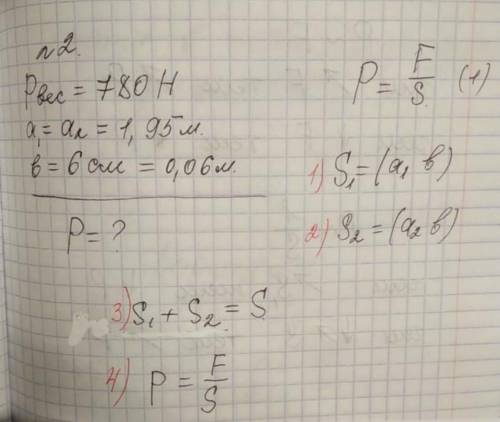 №2.
Pвес = 780 Н
a₁ = a₂ = 1,95 м.
в = 6 см = 0,06 м.
P = ?
P = F/S. (1)
1) S₁ = (a₁ в)
2) S₂ = (a₂ в)
3) S₁ + S₂ = S
4) P = F/S